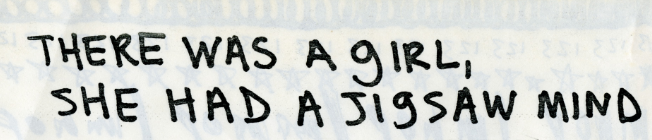 THERE WAS A gIRL,
SHE HAD A JIgSAW MIND